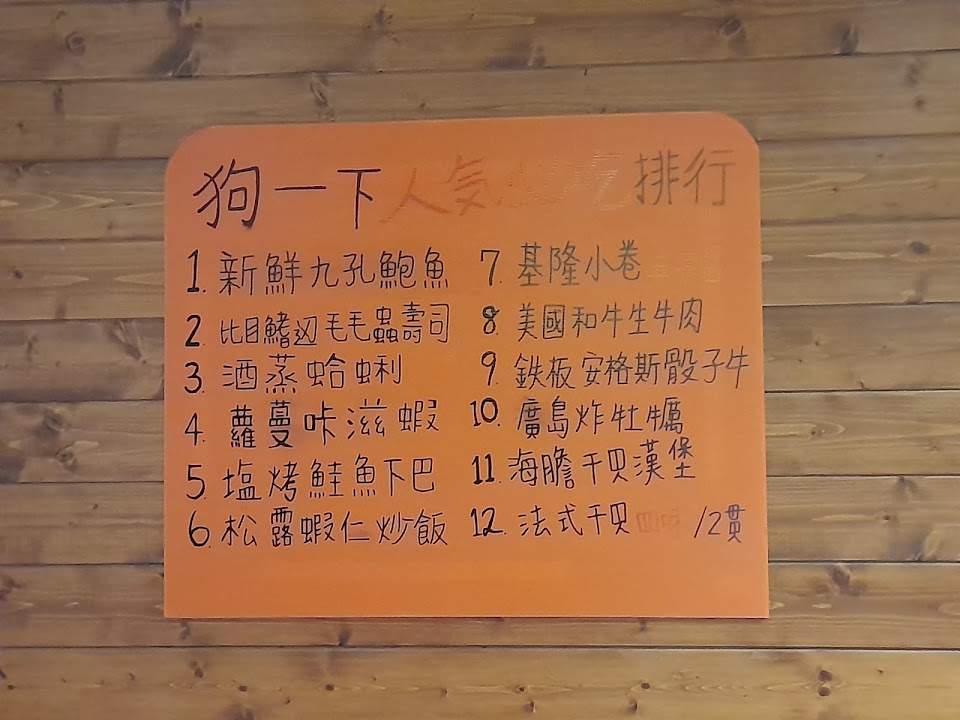 狗一下人氣必吃排行
1. 新鮮九孔鮑魚
2. 比目鰭边毛毛蟲壽司
3. 酒蒸蛤蜊
4. 蘿蔓咔滋蝦
5. 塩烤鮭魚下巴
6. 松露蝦仁炒飯
7. 基隆小卷
8. 美國和牛生牛肉
9. 鉄板安格斯骰子牛
10. 廣島炸牡蠣
11. 海膽干貝漢堡
12. 法式干貝 /2貫